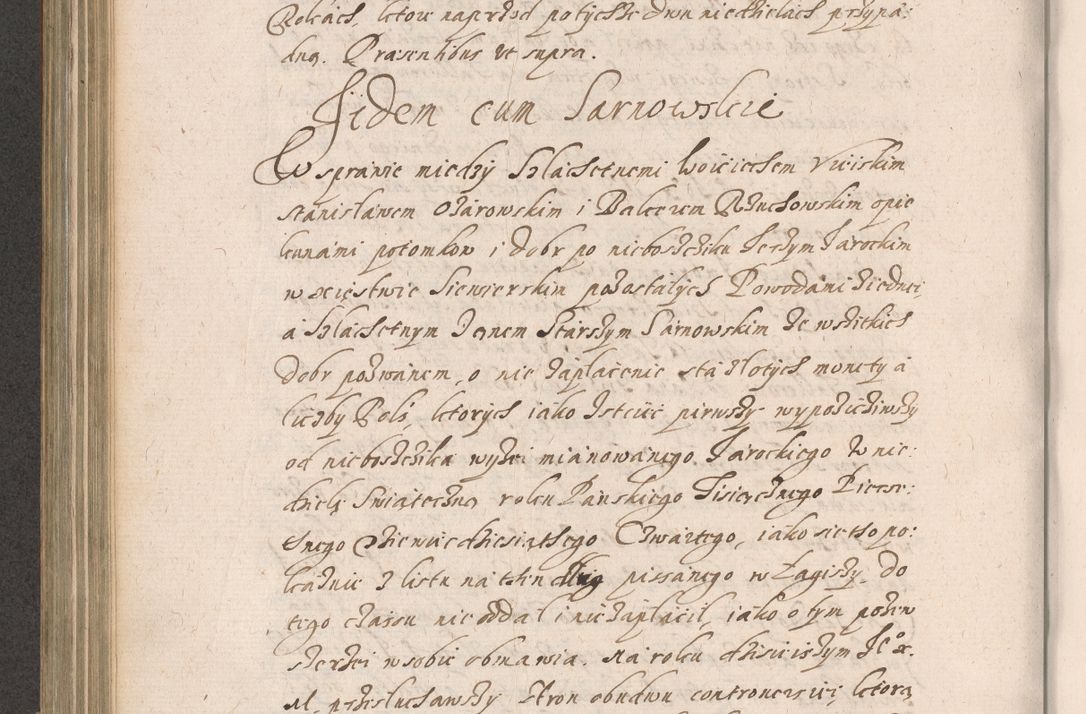 Rokach, ktore naprżod potychże dwu niedzielach przypa:
dną. Præsentibus ut supra.
Jidem cum Sarnowskie
W sprawie miedzy Szlachetnemi Woiciechem
Stanisławem Ożarowskim i Balcerem Kłuchowskim opie
kunami potomkow i dobr po nieboszcziku Jerzym Jarockim
w xięstwie Siewierskim pozostałych Powodami ziednei,
a Szlachetnym Janem Starszym Sarnowskim ze wszitkich
dobr pozwanem, o nie zapłacenie sta złotych monety a
liczby Pols, ktorych iako Istciic pirwszy wypoziciwszy
od nieboszczika wyżei mianowanego Jarockiego w nie:
dzielę Swiąteczną roku Pańskiego Tisiącznego Piecse:
tnego Dziewiedziesiąthego Czwartego, iako sie tho po:
każuie z listu na then dług pissanego w Łagiszy, do
tego czassu nie oddał i nie zapłacił, iako o tym pozew
szerzei w sobie obmawia. Na roku dzisieiszym Je° X.
M. przisłuchawszy stron obudwu controuersiei, ktorą